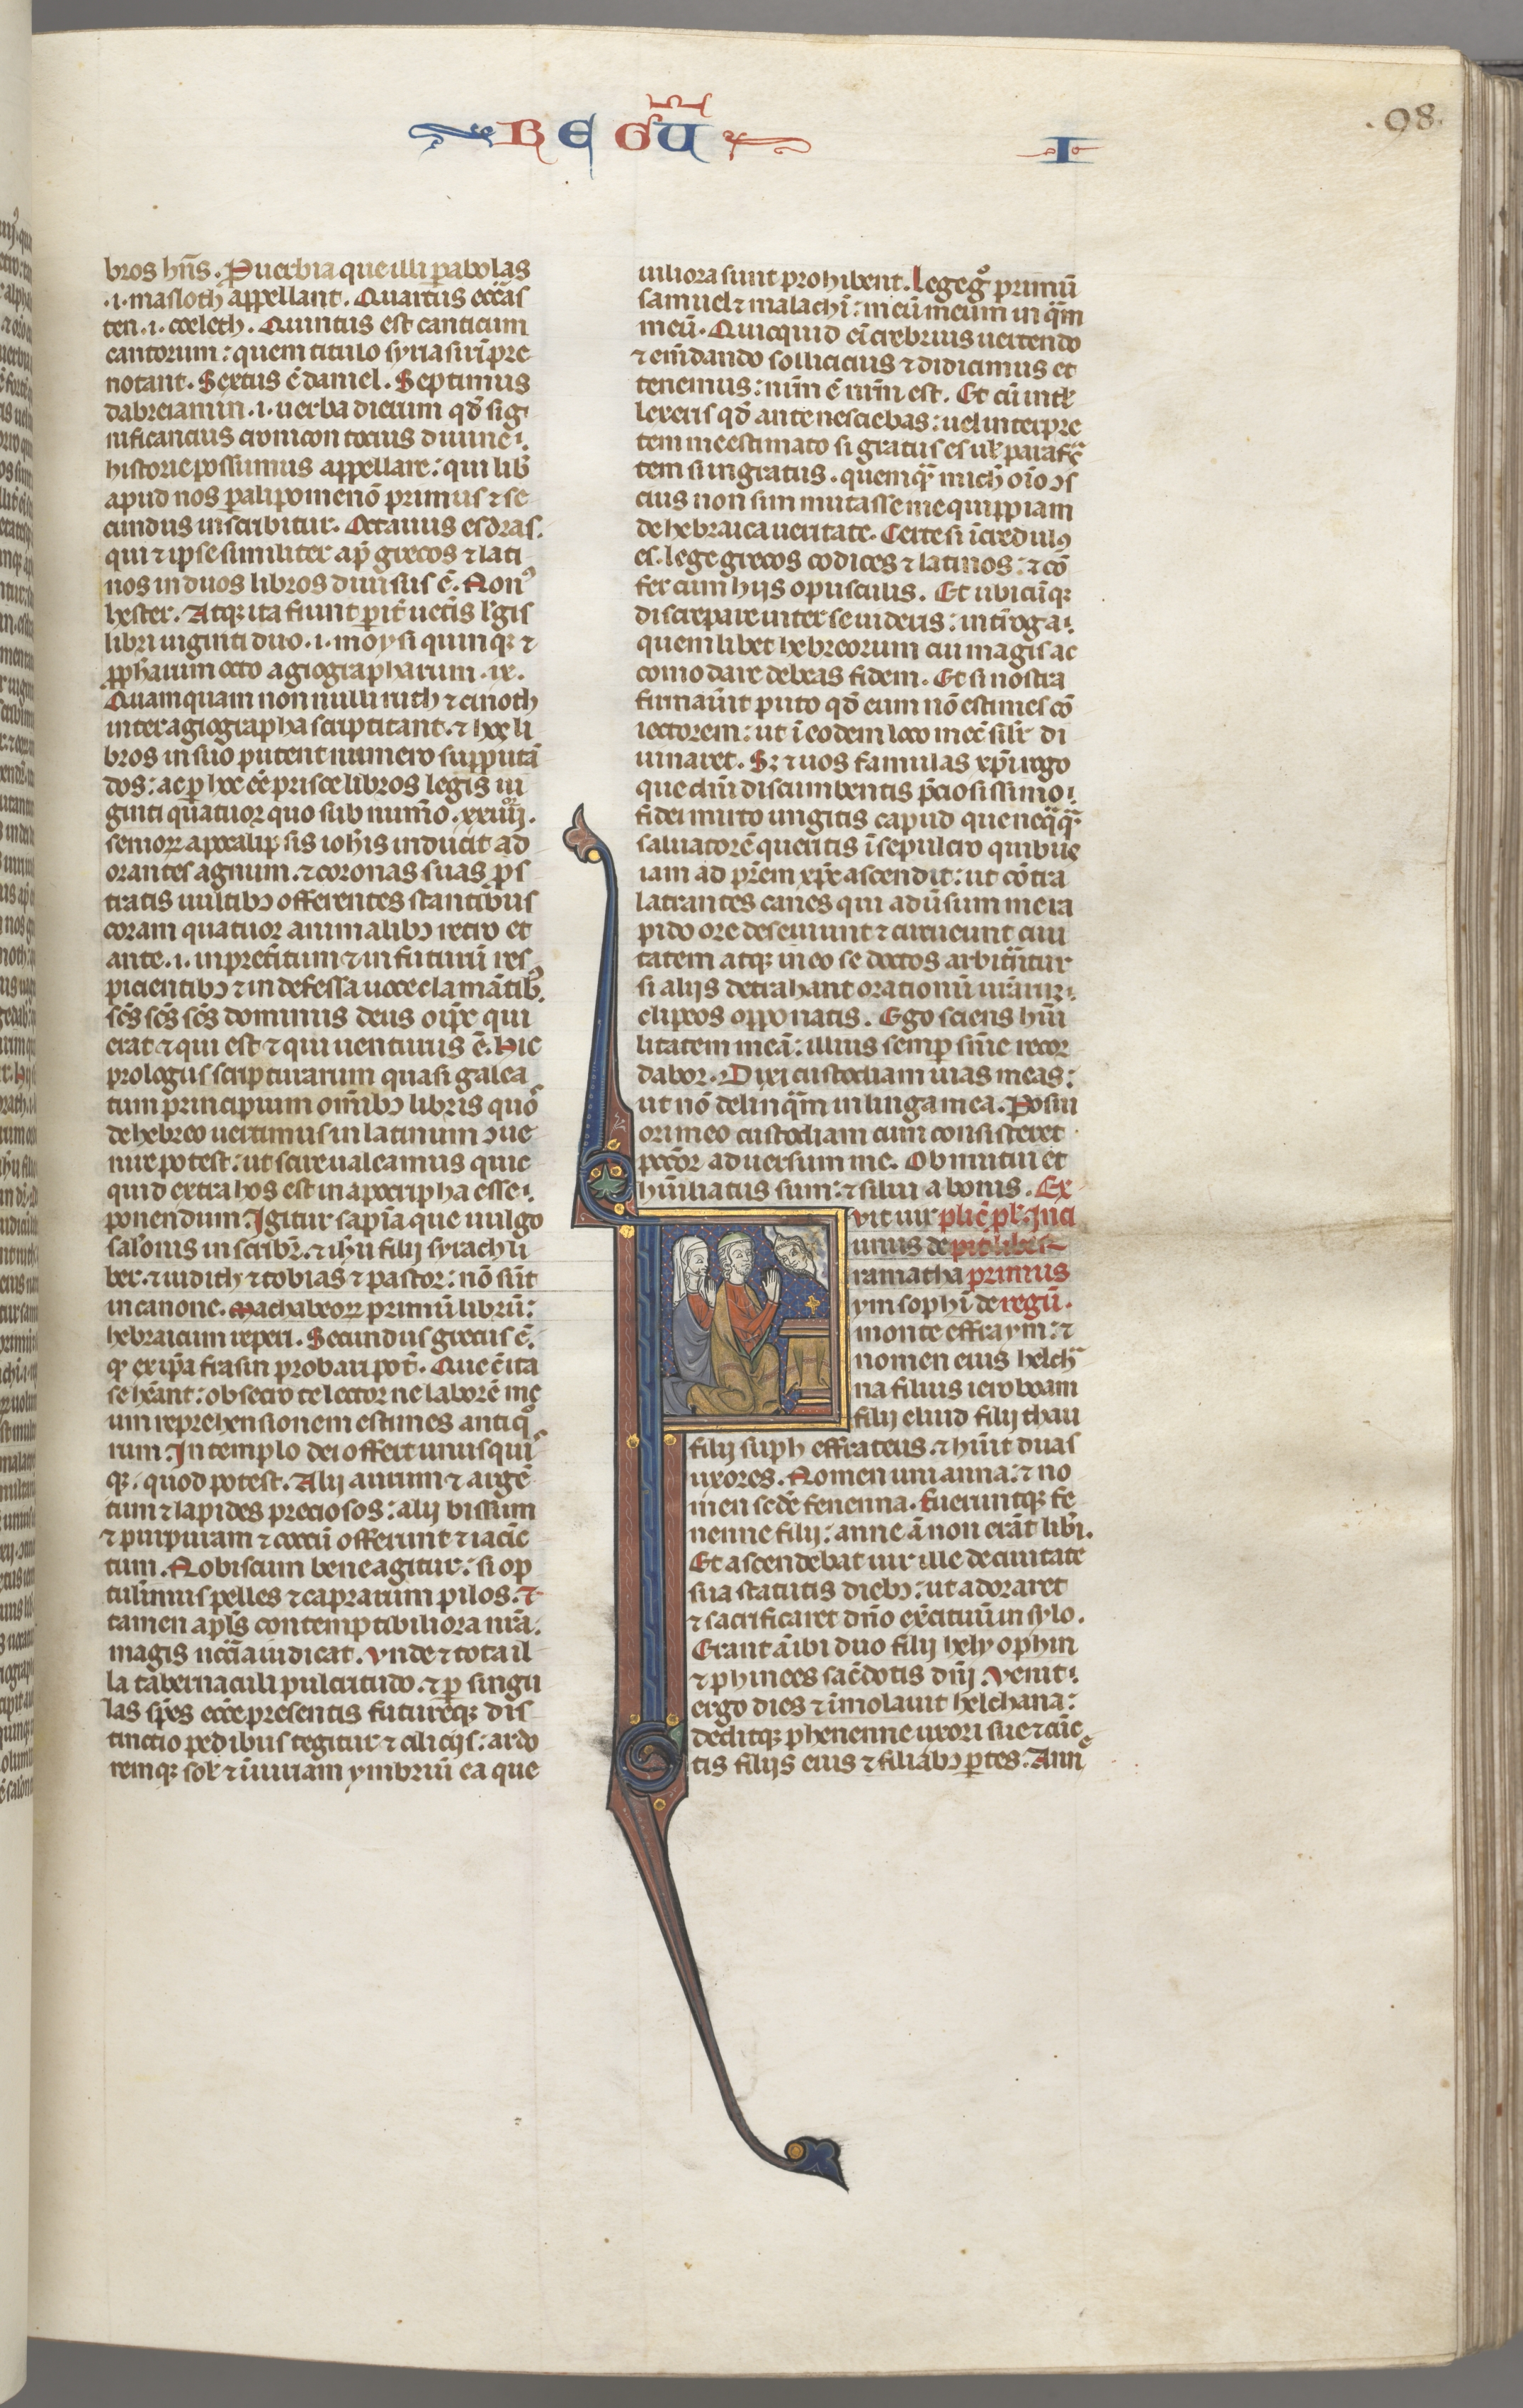 REGŪ
I
.98.
bros hn̄s. Puerbia que illi pabolas
.i. masloth appellant. Quartus eccl̄as
ten .i. coeleth. Quintus est canticum
cantorum: quem titulo syrasirī pre
notant. Sextus ē daniel. Septimus
dabreiamin .i. uerba dierum qd̄ sig
nificancius cronicon tocius diuine
historie possumus appellare: qui lib̄
apud nos palipomenō primus ⁊ se
cundus inscribitur. Octauus esdras.
qui ⁊ ipse similiter ap̄ grecos ⁊ lati
nos in duos libros diuisus ē. Nonꝰ
hester. Atqꝫ ita fiunt pit̄ uet̄is l̄gis
libri uiginti duo .i. moysi quinqꝫ ⁊
ꝓpharum octo agiographarum .ix.
Quamquam non nulli ruth ⁊ cinoth
inter agiographa scriptitant. ⁊ hos li
bros in suo putent numero supputā
dos: ac ꝑ hoc eē prisce libros legis ui
ginti quatuor quo sub num̄o .xxiiij.
seniorꝝ apocalipsis ioh̄is inducit ad
orantes agnum. ⁊ coronas suas ꝓs
tratis uultibꝫ offerentes stantibus
coram quatuor animalibꝫ retro et
ante .i. in pret̄itum ⁊ in futurū res
picientibꝫ ⁊ indefessa uoce clamātibꝫ.
sc̄s sc̄s sc̄s dominus deus oīps qui
erat ⁊ qui est ⁊ qui uenturus ē. Hic
prologus scripturarum quasi galea
tum principium omībꝫ libris quos
de hebreo uertimus in latinum ꝯue
nire potest: ut scire ualeamus quic
quid extra hos est in apocripha esse
ponendum. Igitur sapīa que uulgo
salonis inscribr̄. ⁊ ih̄u filij syrach li
ber. ⁊ iudith ⁊ tobias ⁊ pastor: nō sūt
in canone. Machabeorꝝ primū librū:
hebraicum reperi. Secundus grecus ē.
qꝫ ex ip̄a frasin probari pot̄. Que cū ita
se h̄eant: obsecro te lector ne laborē me
um reprehensionem estimes antiquo
rum. In templo dei offert unusquis
qꝫ. quod potest. Alij aurum ⁊ argē
tum ⁊ lapides preciosos: alij bissum
⁊ purpuram ⁊ coccū offerunt ⁊ iacīc
tum. Nobiscum bene agitur: si op
tulimus pelles ⁊ caprarum pilos. ⁊
tamen apl̄s contemptibiliora nr̄a.
magis nccīa iudicat. Vnde ⁊ tota il
la tabernaculi pulcritudo. ⁊ ꝑ singu
las sp̄es ecc̄e presentis futureqꝫ dis
tinctio pedibus tegitur ⁊ cilicijs: ardo
remqꝫ sol̄ ⁊ iniuriam ymbriū ea que
uiliora sunt prohibent. Lege gͦ primū
samuel ⁊ malachī: meū meum in qᷓm
meū. Quicquid eī crebrius uertendo
⁊ em̄dando sollicicius ⁊ didicimus et
tenemus: nr̄m ē nr̄m est. Et cū intel̄
lexeris qd̄ ante nesciebas: uel interpre
tem me estimato si gratus es ul̄ parafras
tem si ingratus. quemqᷓ mich oīo ꝯs
cius non sim mutasse me quippiam
de hebraica ueritate. Certe si īcredulꝰ
es. lege grecos codices ⁊ latinos: ⁊ cō
fer cum hijs opusculis. Et ubicūqꝫ
discrepare inter se uideris: int̄roga
quemlibet hebreorum cui magis ac
comodare debeas fidem. Et si nostra
firmau̇it puto qd̄ eum nō estimes cō
iectorem: ut ī eodem loco mec̄ sil̄r di
uinaret. Sꝫ ⁊ uos famulas xp̄i rogo
que dn̄i discumbentis p̄ciosissimo
fidei mirto ungitis capud que neq̄q̄ᷓ
saluatorē queritis ī sepulcro quibus
iam ad pr̄em xp̄c ascendit: ut cōtra
latrantes canes qui adu̇sum me ra
pido ore deseuiunt ⁊ circueunt ciui
tatem atqꝫ in eo se doctos arbitrātur
si alijs detrahant orationū urārum
clipeos opponatis. Ego sciens humi
litatem meā: illius semꝑ sn̄ie recor
dabor. Dixi custodiam uias meas:
ut nō delinqᷓm in linga mea. Posui
ori meo custodiam cum consisteret
peccōr aduersum me. Obmutui et
hūiliatus sum: ⁊ silui a bonis. Ex
vit uir plic̄ pl̄. Inci
unus de pit liber
ramatha primus
ym sophī de regū.
monte effraym: ⁊
nomen eius helcha
na filius ieroboam
filij eliud filij thau
filij suph effrateus. ⁊ hūit duas
uxores. Nomen uni anna: ⁊ no
men secūde fenenna. Fueruntqꝫ fe
nenne filij: anne ā non erāt libi̇.
Et ascendebat uir ille de ciuitate
sua statutis diebꝫ: ut adoraret
⁊ sacrificaret dn̄o exc̄ituū in sylo.
Erant ā ibi duo filij hely ophin
⁊ phinees sac̄dotis dn̄j. Venit
ergo dies ⁊ īmolauit helchana:
deditqꝫ phenenne uxori sue ⁊ cūc
tis filijs eius ⁊ filiabꝫ ꝑtes. Ann